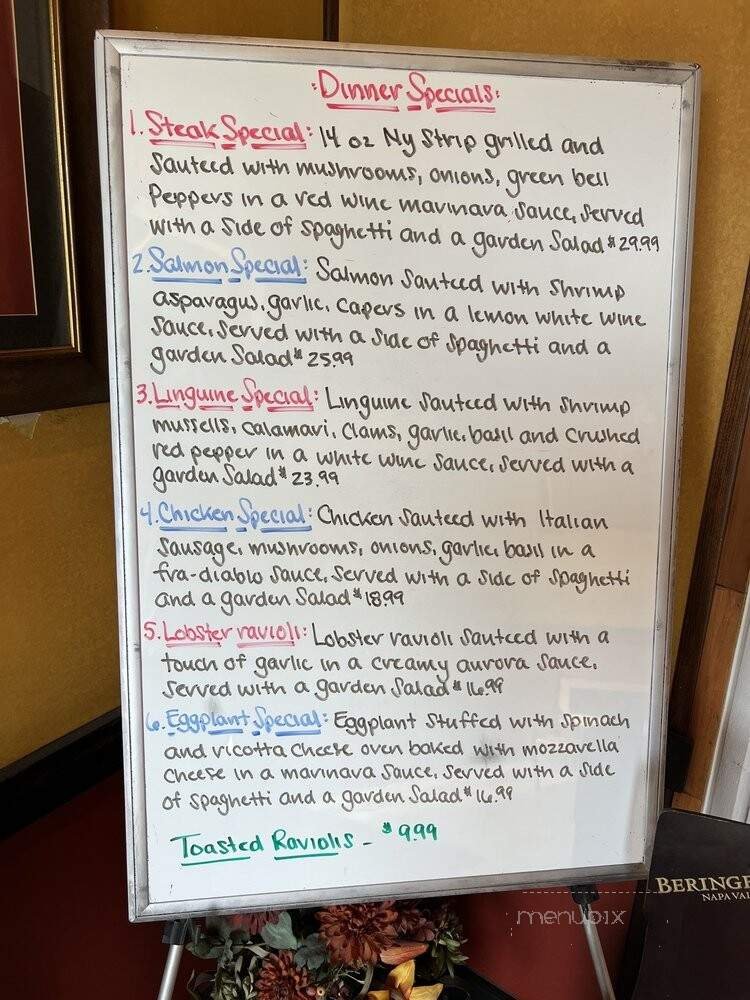 :Dinner Specials:
1. Steak Special: 14 oz Ny Strip grilled and
Sauteed with mushrooms, onions, green bell
Peppers in a red wine marinara sauce, served
with a side of spaghetti and a garden Salad $29.99
2. Salmon Special: Salmon Sauteed with Shrimp
asparagus, garlic, capers in a lemon white wine
Sauce, Served with a side of spaghetti and a
garden Salad $25.99
3. Linguine Special: Linguine Sauteed with Shrimp
mussells, calamari, clams, garlic, basil and crushed
red pepper in a white wine sauce, served with a
garden Salad $23.99
4. Chicken Special: Chicken Sauteed with Italian
Sausage, mushrooms, onions, garlic, basil in a
fra-diablo sauce, served with a side of spaghetti
and a garden Salad $18.99
5. Lobster ravioli: Lobster ravioli Sauteed with a
touch of garlic in a creamy aurora sauce,
Served with a garden Salad $16.99
6. Eggplant Special: Eggplant Stuffed with Spinach
and ricotta cheese oven baked with mozzarella
Cheese in a marinara Sauce, served with a side
of spaghetti and a garden Salad $16.99
Toasted Raviolis - $9.99
menubix
NAPA VAL